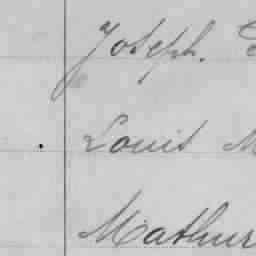 Joseph.
Louis M
Mathur